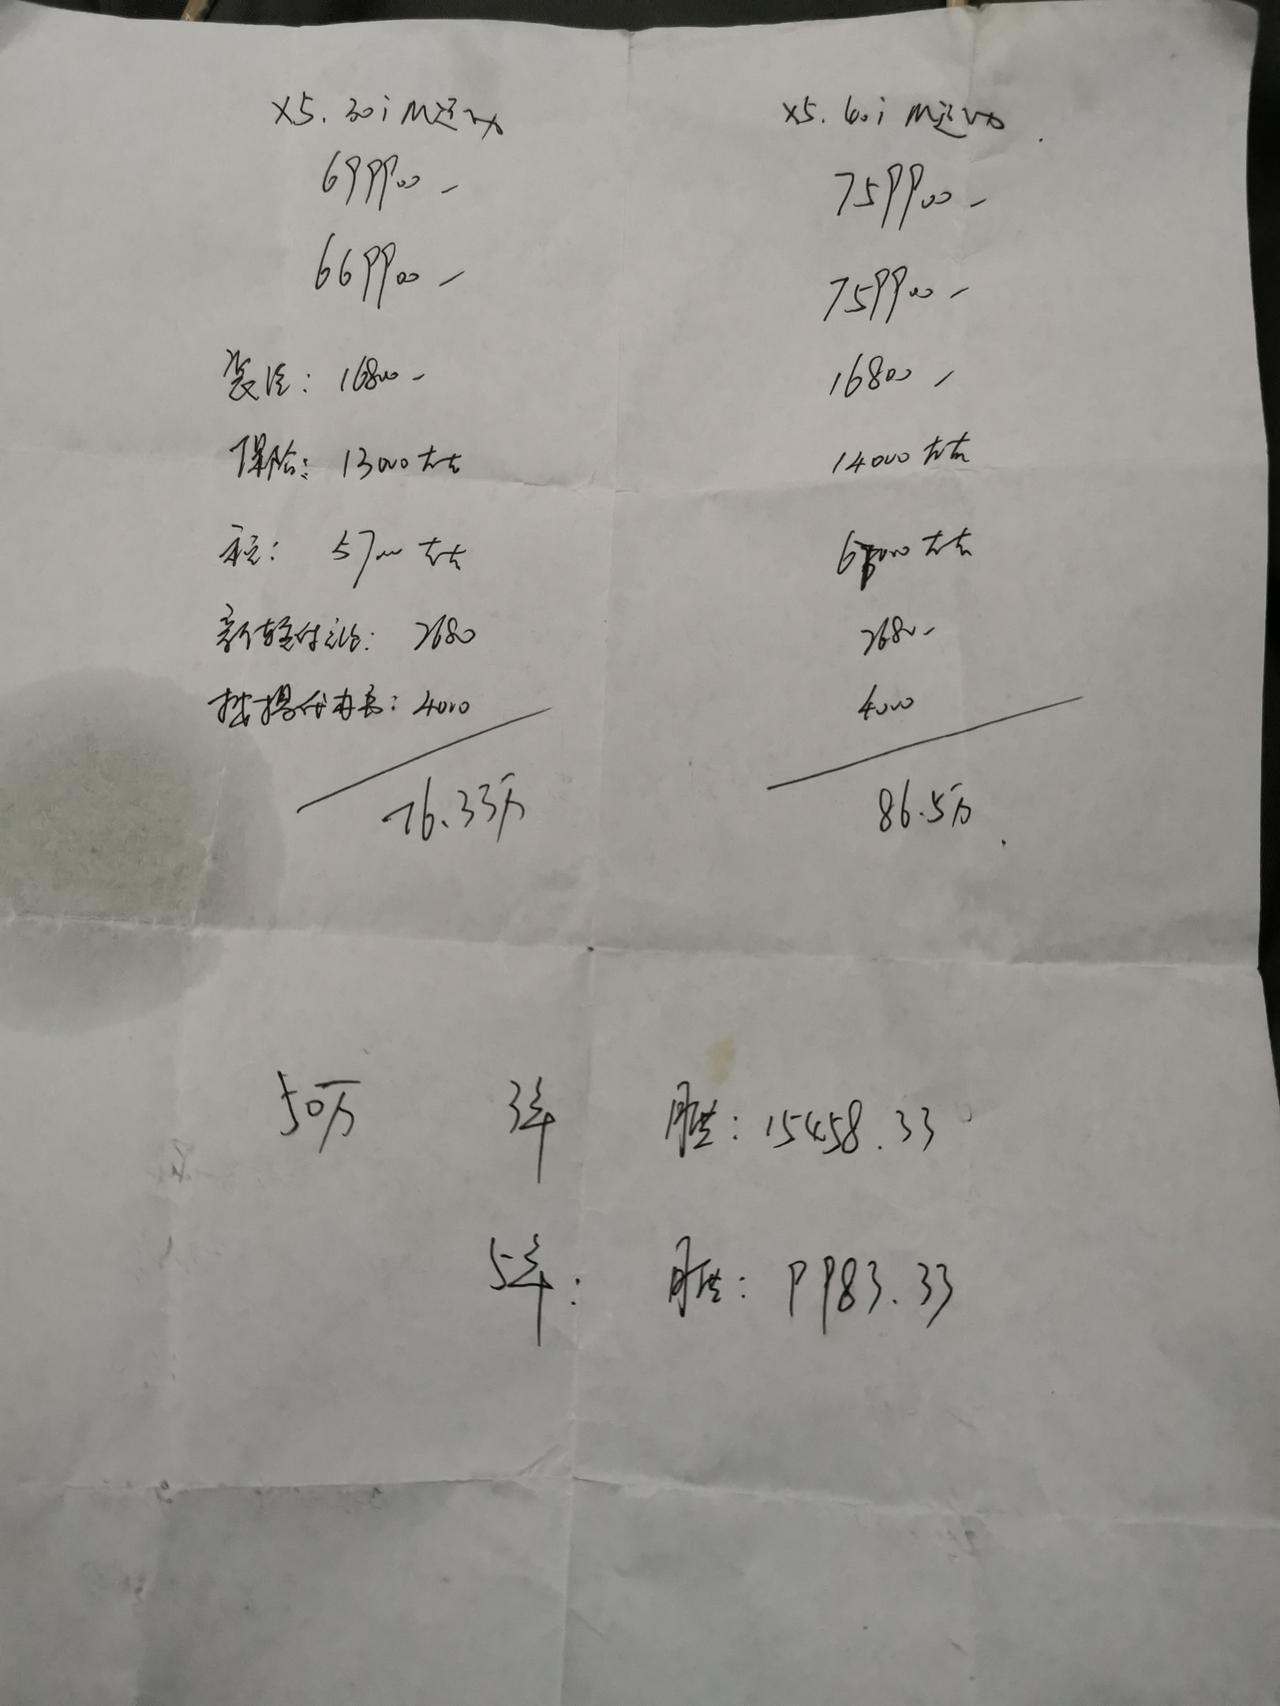 X5. 30i M运动 X5. 40i M运动
699900 - 759900 -
669900 - 759900 -
装潢: 16800 - 16800 -
保险: 13000左右 14000左右
税: 57000左右 67000左右
2680 2680 -
代办费: 4000 4000
76.33万 86.5万
50万 3年 月供: 15458.33
5年: 月供: 9983.33